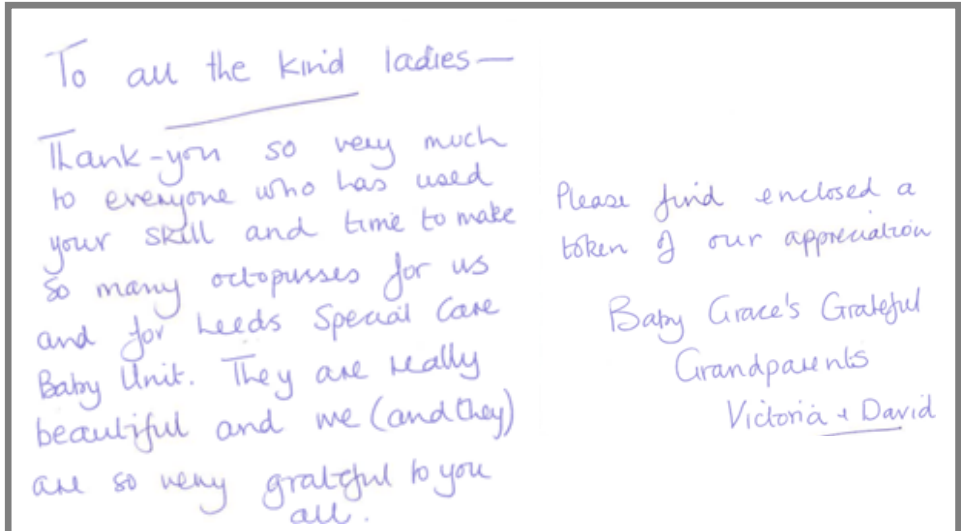 To all the kind ladies—
Thank-you so very much
to everyone who has used
your skill and time to make
so many octopusses for us
and for Leeds Special Care
Baby Unit. They are really
beautiful and we (and they)
are so very grateful to you
all.
Please find enclosed a
token of our appreciation
Baby Grace's Grateful
Grandparents
Victoria + David